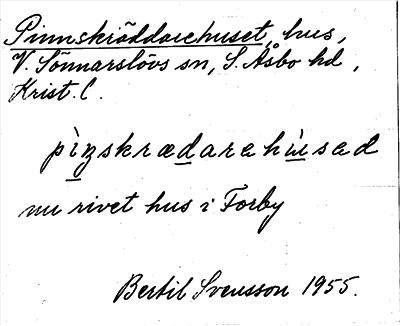 Pinnskräddarehuset, hus,
V. Sönnarslövs sn, S. Åsbo hd,
Krist. l.
pìnskrædarehùsəd
nu rivet hus i Forby
Bertil Svensson 1955.